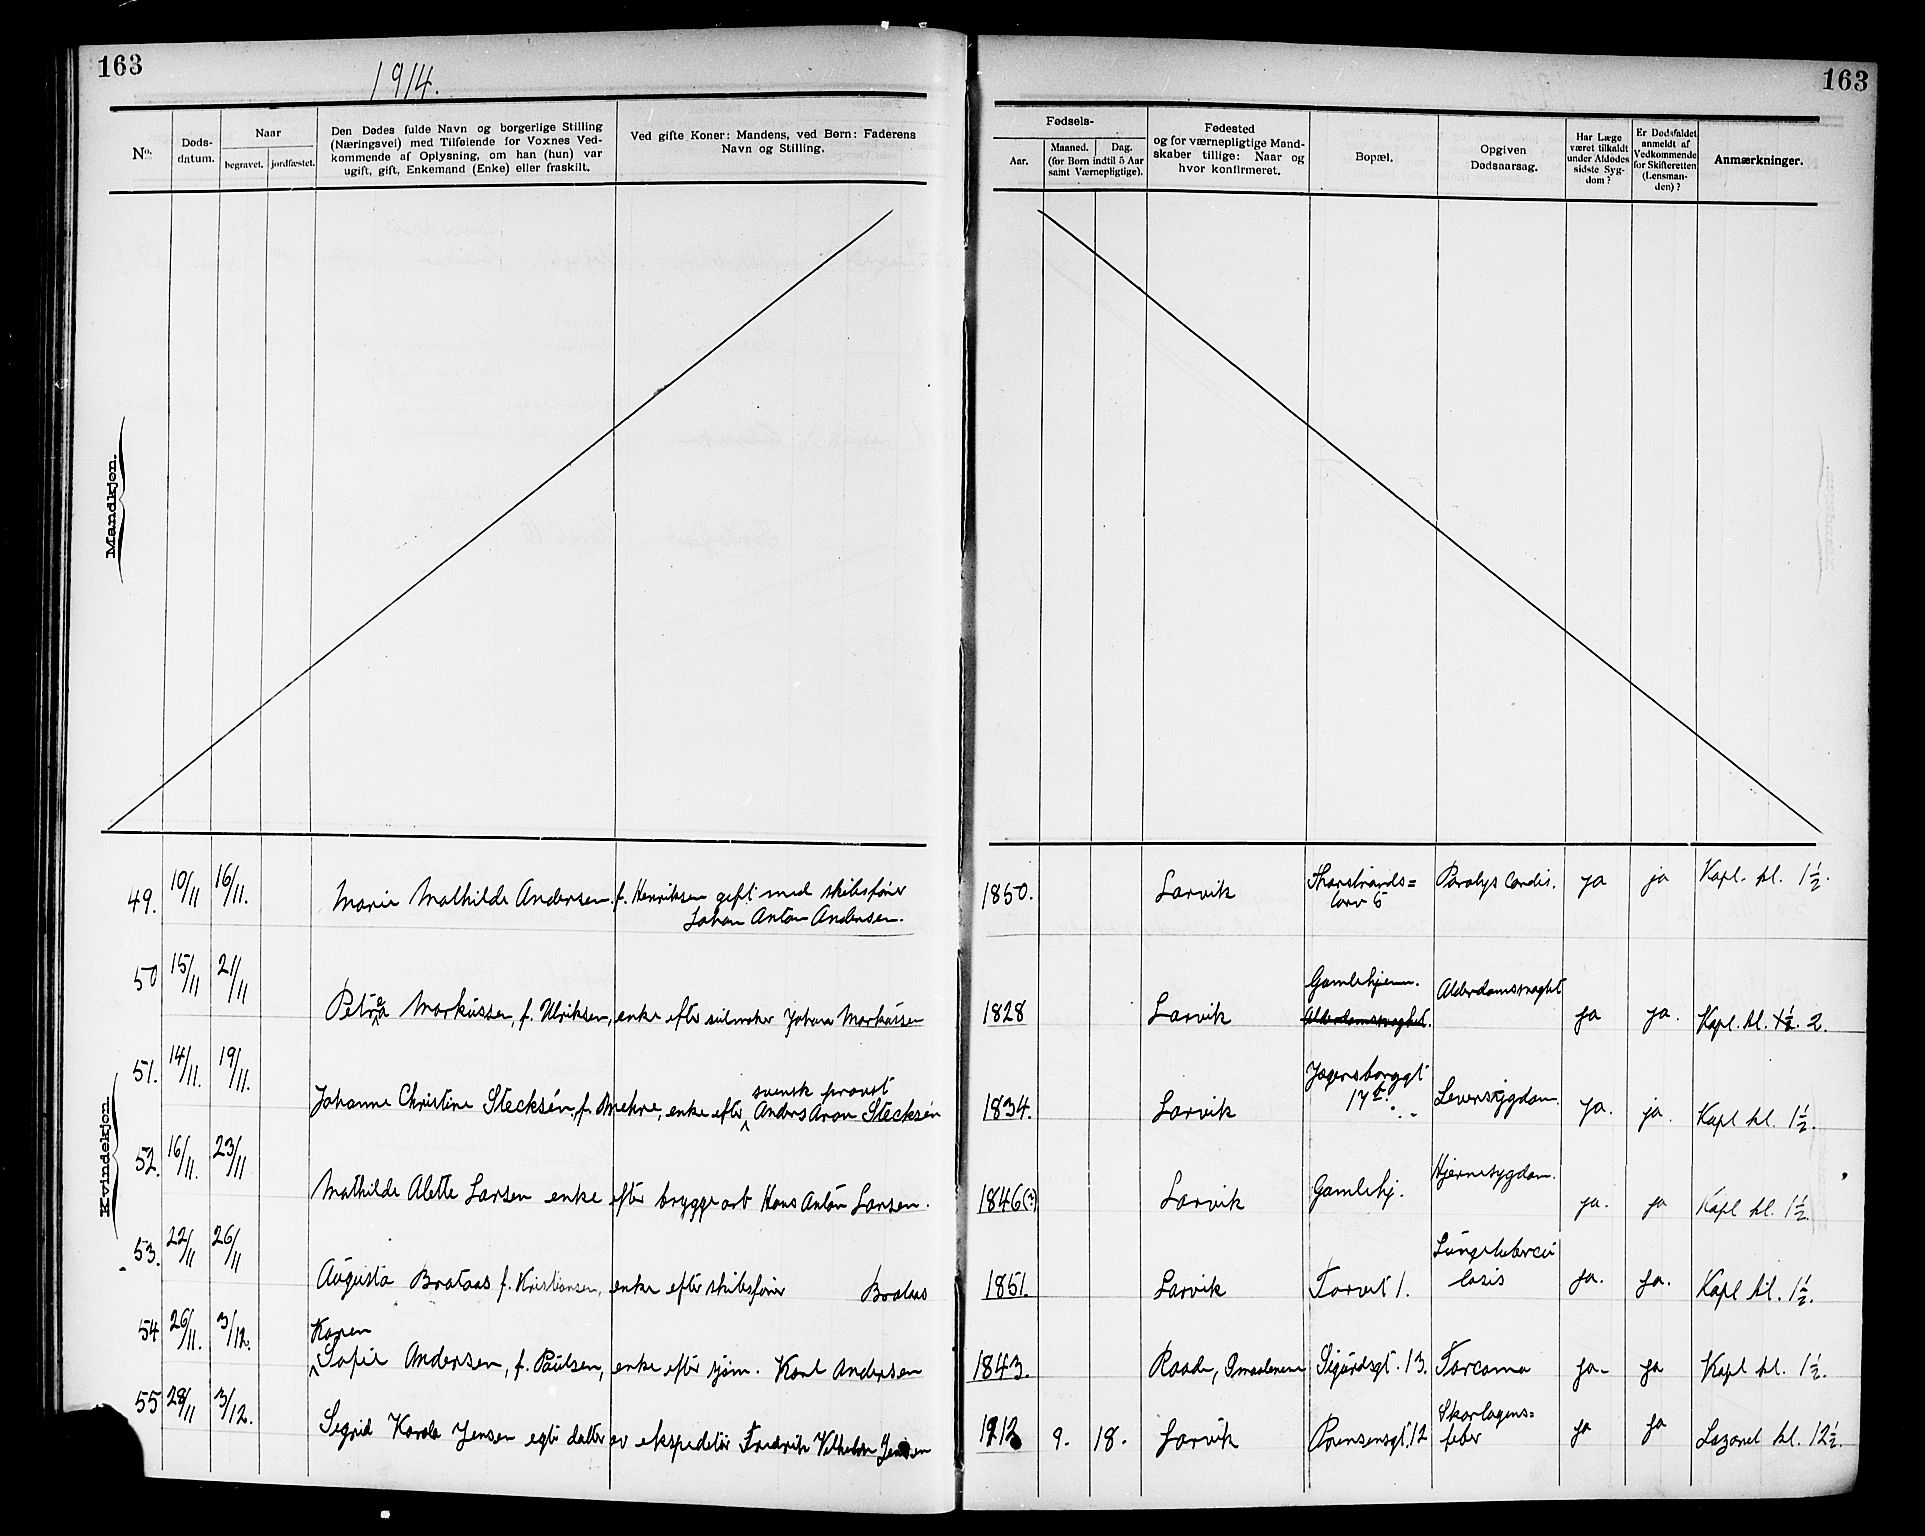 163
1914.
163
No.
Døds-
datum.
Naar
begravet.
jordfæstet.
Den Dødes fulde Navn og borgerlige Stilling
(Næringsvei) med Tilføiende for Voxnes Ved-
kommende af Oplysning, om han (hun) var
ugift, gift, Enkemand (Enke) eller fraskilt.
Ved gifte Koner: Mandens, ved Børn: Faderens
Navn og Stilling.
Fødsels-
Aar.
Maaned.
Dag.
(for Børn indtil 5 Aar
samt Værnepligtige).
Fødested
og for værnepligtige Mand-
skaber tillige: Naar og
hvor konfirmeret.
Bopæl.
Opgiven
Dødsaarsag.
Har Læge
været tilkaldt
under Afdødes
sidste Syg-
dom?
Er Dødsfaldet
anmeldt af
Vedkommende
for Skifteretten
(Lensman-
den)?
Anmærkninger.
Mandkjøn.
Kvindekjøn
49. 10/11 16/11. Marie Mathilde Andersen. f. Henriksen gift med skibsfører
Johan Anton Andersen.
1850. Larvik Thorstrands=
torv 6 Paralys Cordis. ja ja Kapl. kl. 1½.
50 15/11 21/11 Petrea Markussen, f. Ulriksen, enke efter seilmaker Johan Markussen
1828 Larvik Gamlehjem.
Alderdomssvaghet. Alderdomssvaghet ja ja. Kapl. kl. 1½. 2.
51. 14/11. 19/11. Johanne Christine Stecksén, f. Brehne, enke efter svensk provst Anders Aron Stecksén
1834. Larvik Jægersborggt
17 Leversygdom. ja. ja. Kapl kl. 1½.
52. 16/11. 23/11 Mathilde Alette Larsen enke efter bryggearb Hans Anton Larsen.
1846(?) Larvik Gamlehj. Hjernesygdom. ja. ja Kapl kl. 1½.
53. 22/11 26/11 Augusta Brataas f. Kristiansen, enke efter skibsfører Brataas
1851. Larvik Torvet 1. Lungetubercu
losis ja. ja. Kapl kl. 1½.
54 26/11. 3/12. Karen
Sofie Andersen, f. Paulsen, enke efter sjøm. Karl Andersen
1843. Raade, Smaalenene Sigurdsgt. 13. Sarcoma ja. ja Kapl kl. 1½.
55 28/11 3/12. Segrid Karola Jensen egte datter av ekspeditør Fredrik Vilhelm Jensen
1912 9. 18. Larvik Prinsensgt. 12 Skarlagens=
feber ja ja Lazaret kl. 12½.